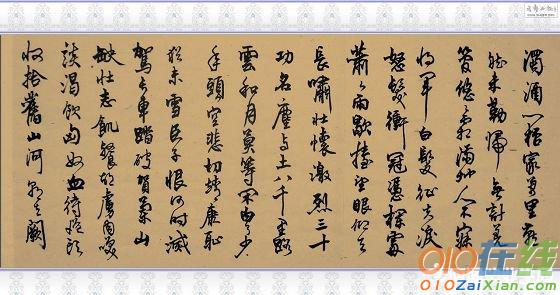 濁酒一杯家萬里燕
然未勒歸無計羌
管悠悠霜滿地人不寐
將軍白髮征夫淚
怒髮衝冠憑欄處
蕭蕭雨歇擡望眼仰天
長嘯壯懷激烈三十
功名塵與土八千里路
雲和月莫等閒白了少
年頭空悲切靖康恥
猶未雪臣子恨何時滅
駕長車踏破賀蘭山
缺壯志飢餐胡虜肉笑
談渴飲匈奴血待從頭
收拾舊山河朝天闕
010在线
010ZaiXian.com